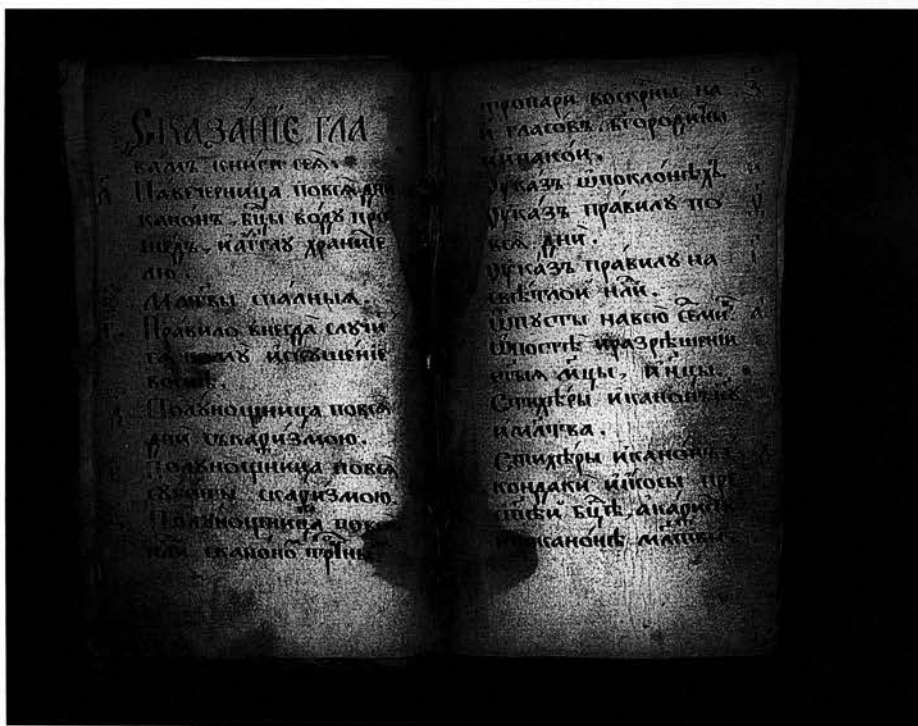 Сказа́нїе гла
вамъ кни́ги сеѧ̀.
Павечерница повсѧ дни
канонъ, бцы во́дꙋ про
шедъ, и а҆́гг҃лꙋ храните
лю.
Мл҃твы спа́лныѧ.
Пра́вило внегда̀ слꙋчи
и҆скꙋше́нїе
во снѣ̀.
Полꙋнощница повсѧ
дни̑ съ кафи́змою.
Полꙋнощница повсѧ
скафи́змою
Полꙋнощница пов
нл҃и сканоно̑ трⷪ҇чны
тропарѝ воскр҃ны на
и҃ гласо́въ, бг҃оро́дичны
и҆пакои̑.
Оу҆ка́зъ ѡ҆ покло́нѣхъ
Оу҆ка́зъ пра́вилꙋ по
всѧ̀ дни̑.
Оу҆ка́зъ пра́вилꙋ на
свѣ́тлой нл҃и.
Ѿпꙋсты̀ на всю̀ седми́
Ѡ҆ постѣ̀ и҆ разрѣше́нїи
мц҃ы,
Стихѣ́ры и҆ кано́нъ
и҆ мл҃тва.
Стихѣ́ры и҆ кано́нъ
кондаки̑ и҆ і҆́косы пре
бц҃ѣ,
кано́нѣ мл҃твы